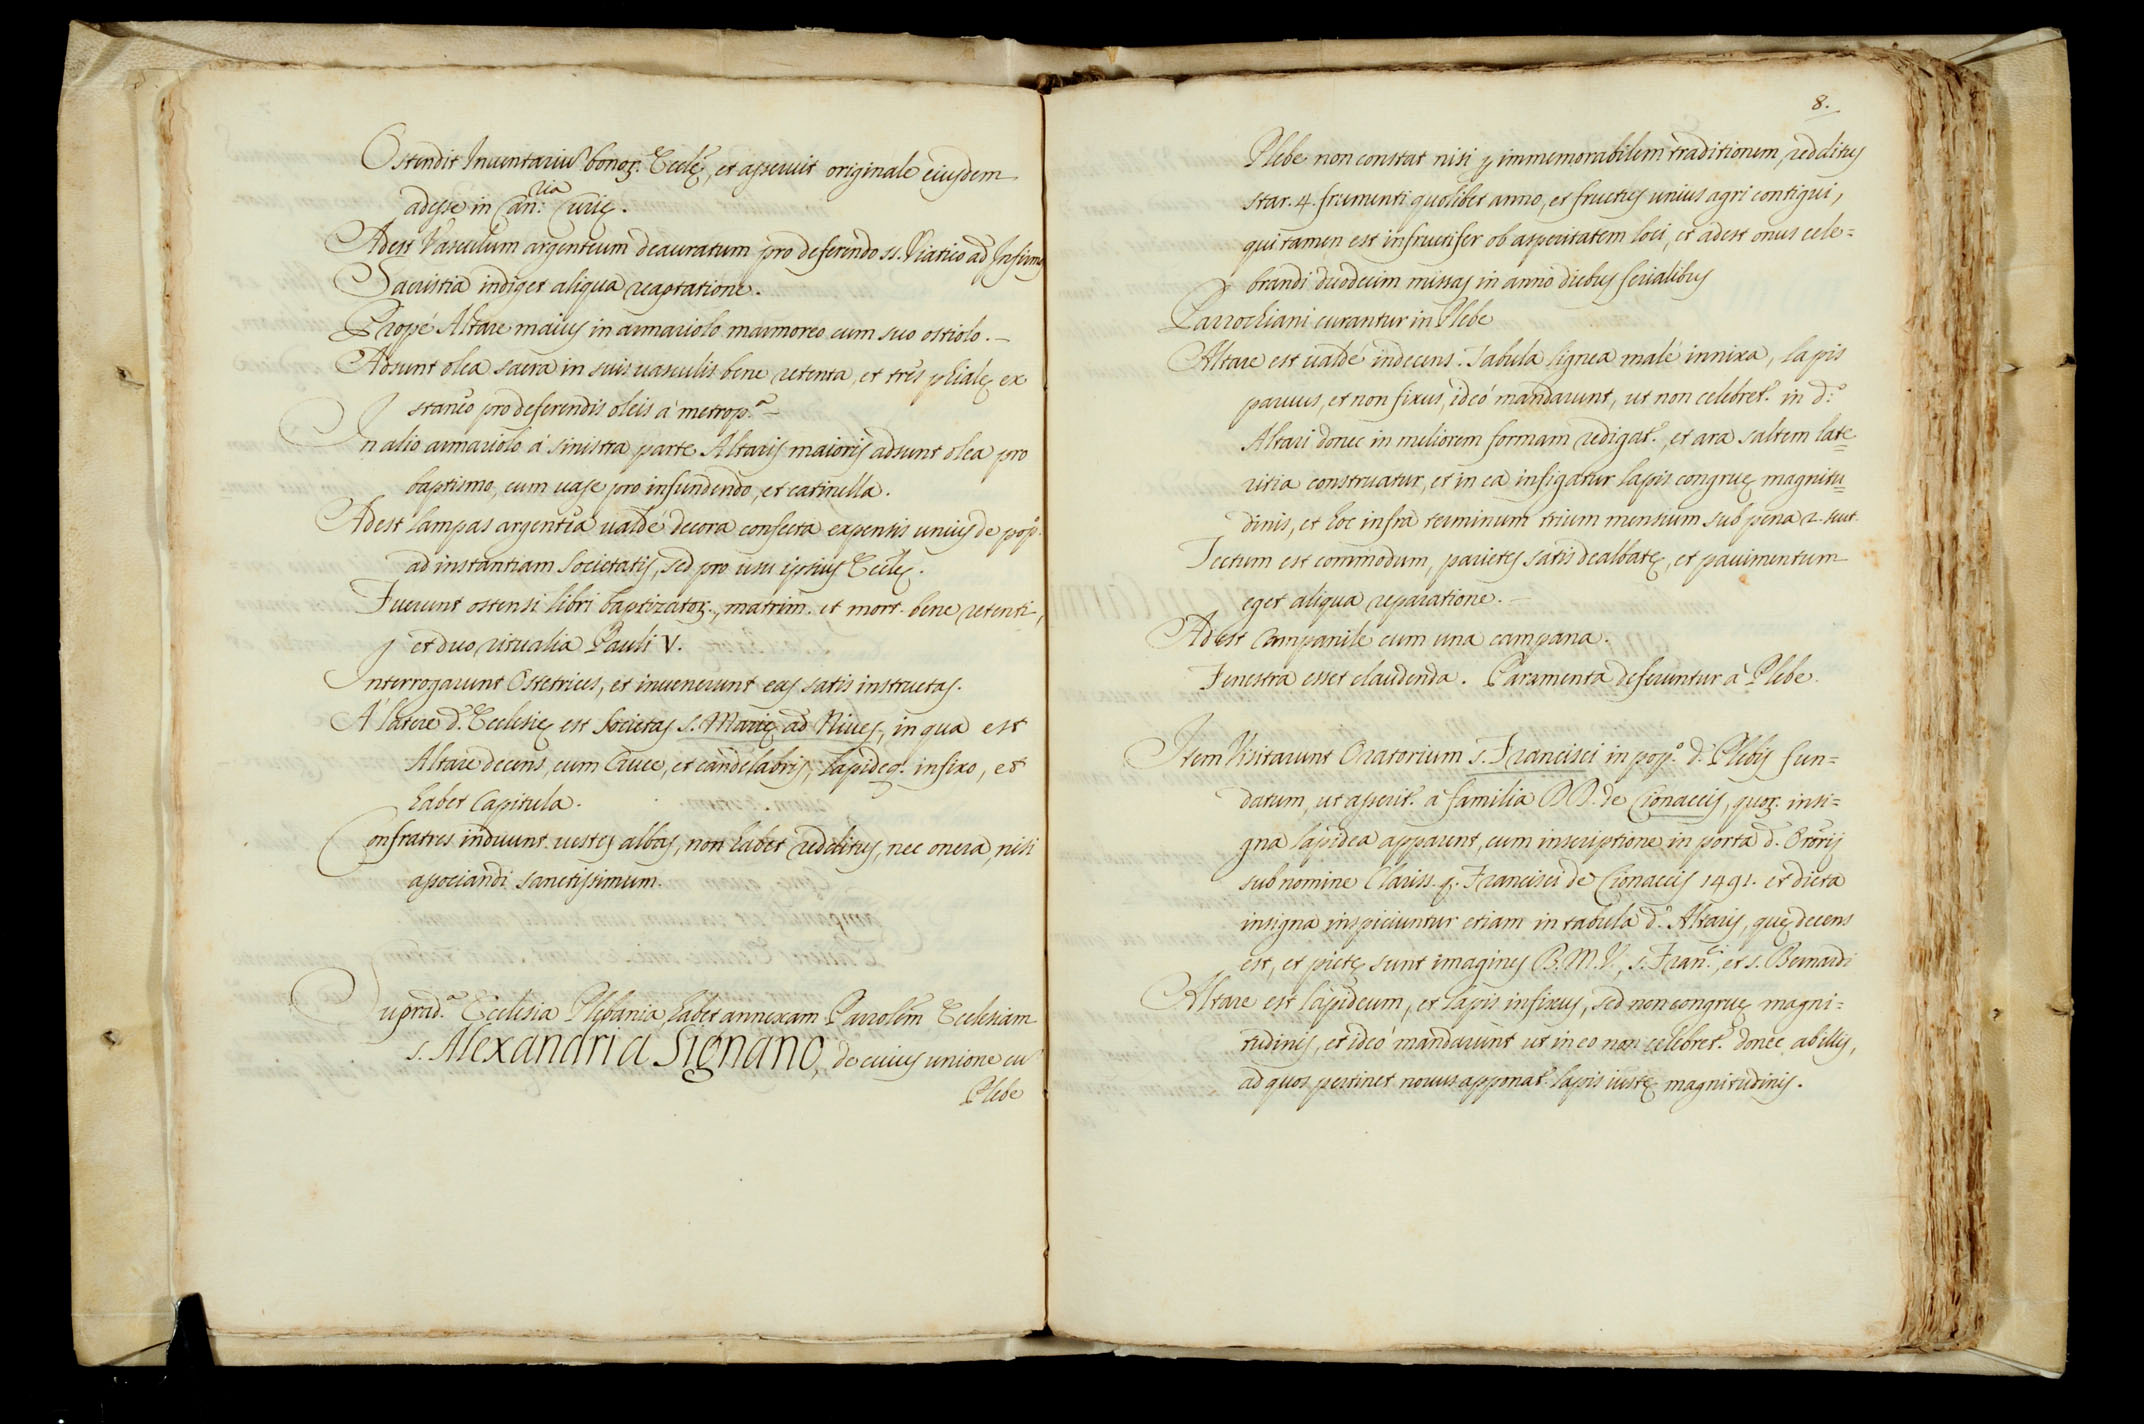 Ostendit Inuentariũ bonoꝝ. Eccl̃ę, et asseruit originale eiusdem
adesse in Can:ria Curię.
Adest Vasculum argenteum deauratum pro deferendo ss. Viatico ad Infirmo
Sacristia indiget aliqua reaptatione.
Propè Altare maius in armariolo marmoreo cum suo ostiolo. –
Adsunt olea sacra in suis uasculis bene retenta, et tres phialę ex
staneo pro deferendis oleis à metrop.a –
In alio armariolo à sinistra parte Altaris maioris adsunt olea pro
baptismo, cum uase pro infundendo, et catinella.
Adest lampas argentea ualdè decora confecta expensis unius de pop.o
ad instantiam Societatis, sed pro usu ipsius Eccl̃ę.
Fuerunt ostensi libri baptizatoꝝ., matrim. et mort. bene retenti,
et duo ritualia Pauli V.
Interrogarunt Ostetrices, et inuenerunt eas satis instructas.
A latere d.ę Ecclesię est Societas S. Marię ad Niues, in qua est
Altare decens, cum Cruce, et candelabris, lapideq. infixo, et
habet Capitula.
Confratres induunt uestes albas, non habet redditus, nec onera, nisi
associandi sanctissimum.
Suprad.a Ecclesia Plebania habet annexam Parrolẽm Ecclesiam
S. Alexandri a Signano, de cuius unione cũ
Plebe
8.
Plebe non constat nisi ꝑ immemorabilem traditionem, redditus
star. 4. frumenti quolibet anno, et fructus unius agri contigui,
qui tamen est infructifer ob asperitatem loci, et adest onus cele=
brandi duodecim missas in anno diebus ferialibus
Parrochiani curantur in Plebe
Altare est ualdè indecens. Tabula lignea malè innixa, lapis
paruus, et non fixus, ideò mandarunt, ut non celebret.r in d.o
Altari donec in meliorem formam redigat.r, et ara saltem late=
ritia construatur, et in ea infigatur lapis congruę magnitu=
dinis, et hoc infra terminum trium mensium sub pena 2. scut.
Tectum est commodum, parietes satis dealbatę, et pauimentum
eget aliqua reparatione. –
Adest Campanile cum una campana.
Fenestra esset claudenda. Paramenta deferuntur à Plebe.
Item Visitarunt Oratorium S. Francisci in pop.o d.ę Plebis fun=
datum, ut asserit.r à familia DD. de Cionaccis, quoꝝ. insi=
gna lapidea apparent, cum inscriptione in porta d. Oratorij
sub nomine Clariss. q. Francisci de Cionaccis 1491. et dicta
insigna inspiciuntur etiam in tabula d.i Altaris, quę decens
est, et pictę sunt imagines B.M.V., S. Fran.ci, et S. Bernardi
Altare est lapideum, et lapis infixus, sed non congruę magni=
tudinis, et ideò mandarunt ut in eo non celebret.r donec ab illis,
ad quos pertinet nouus apponat.r lapis iustę magnitudinis.